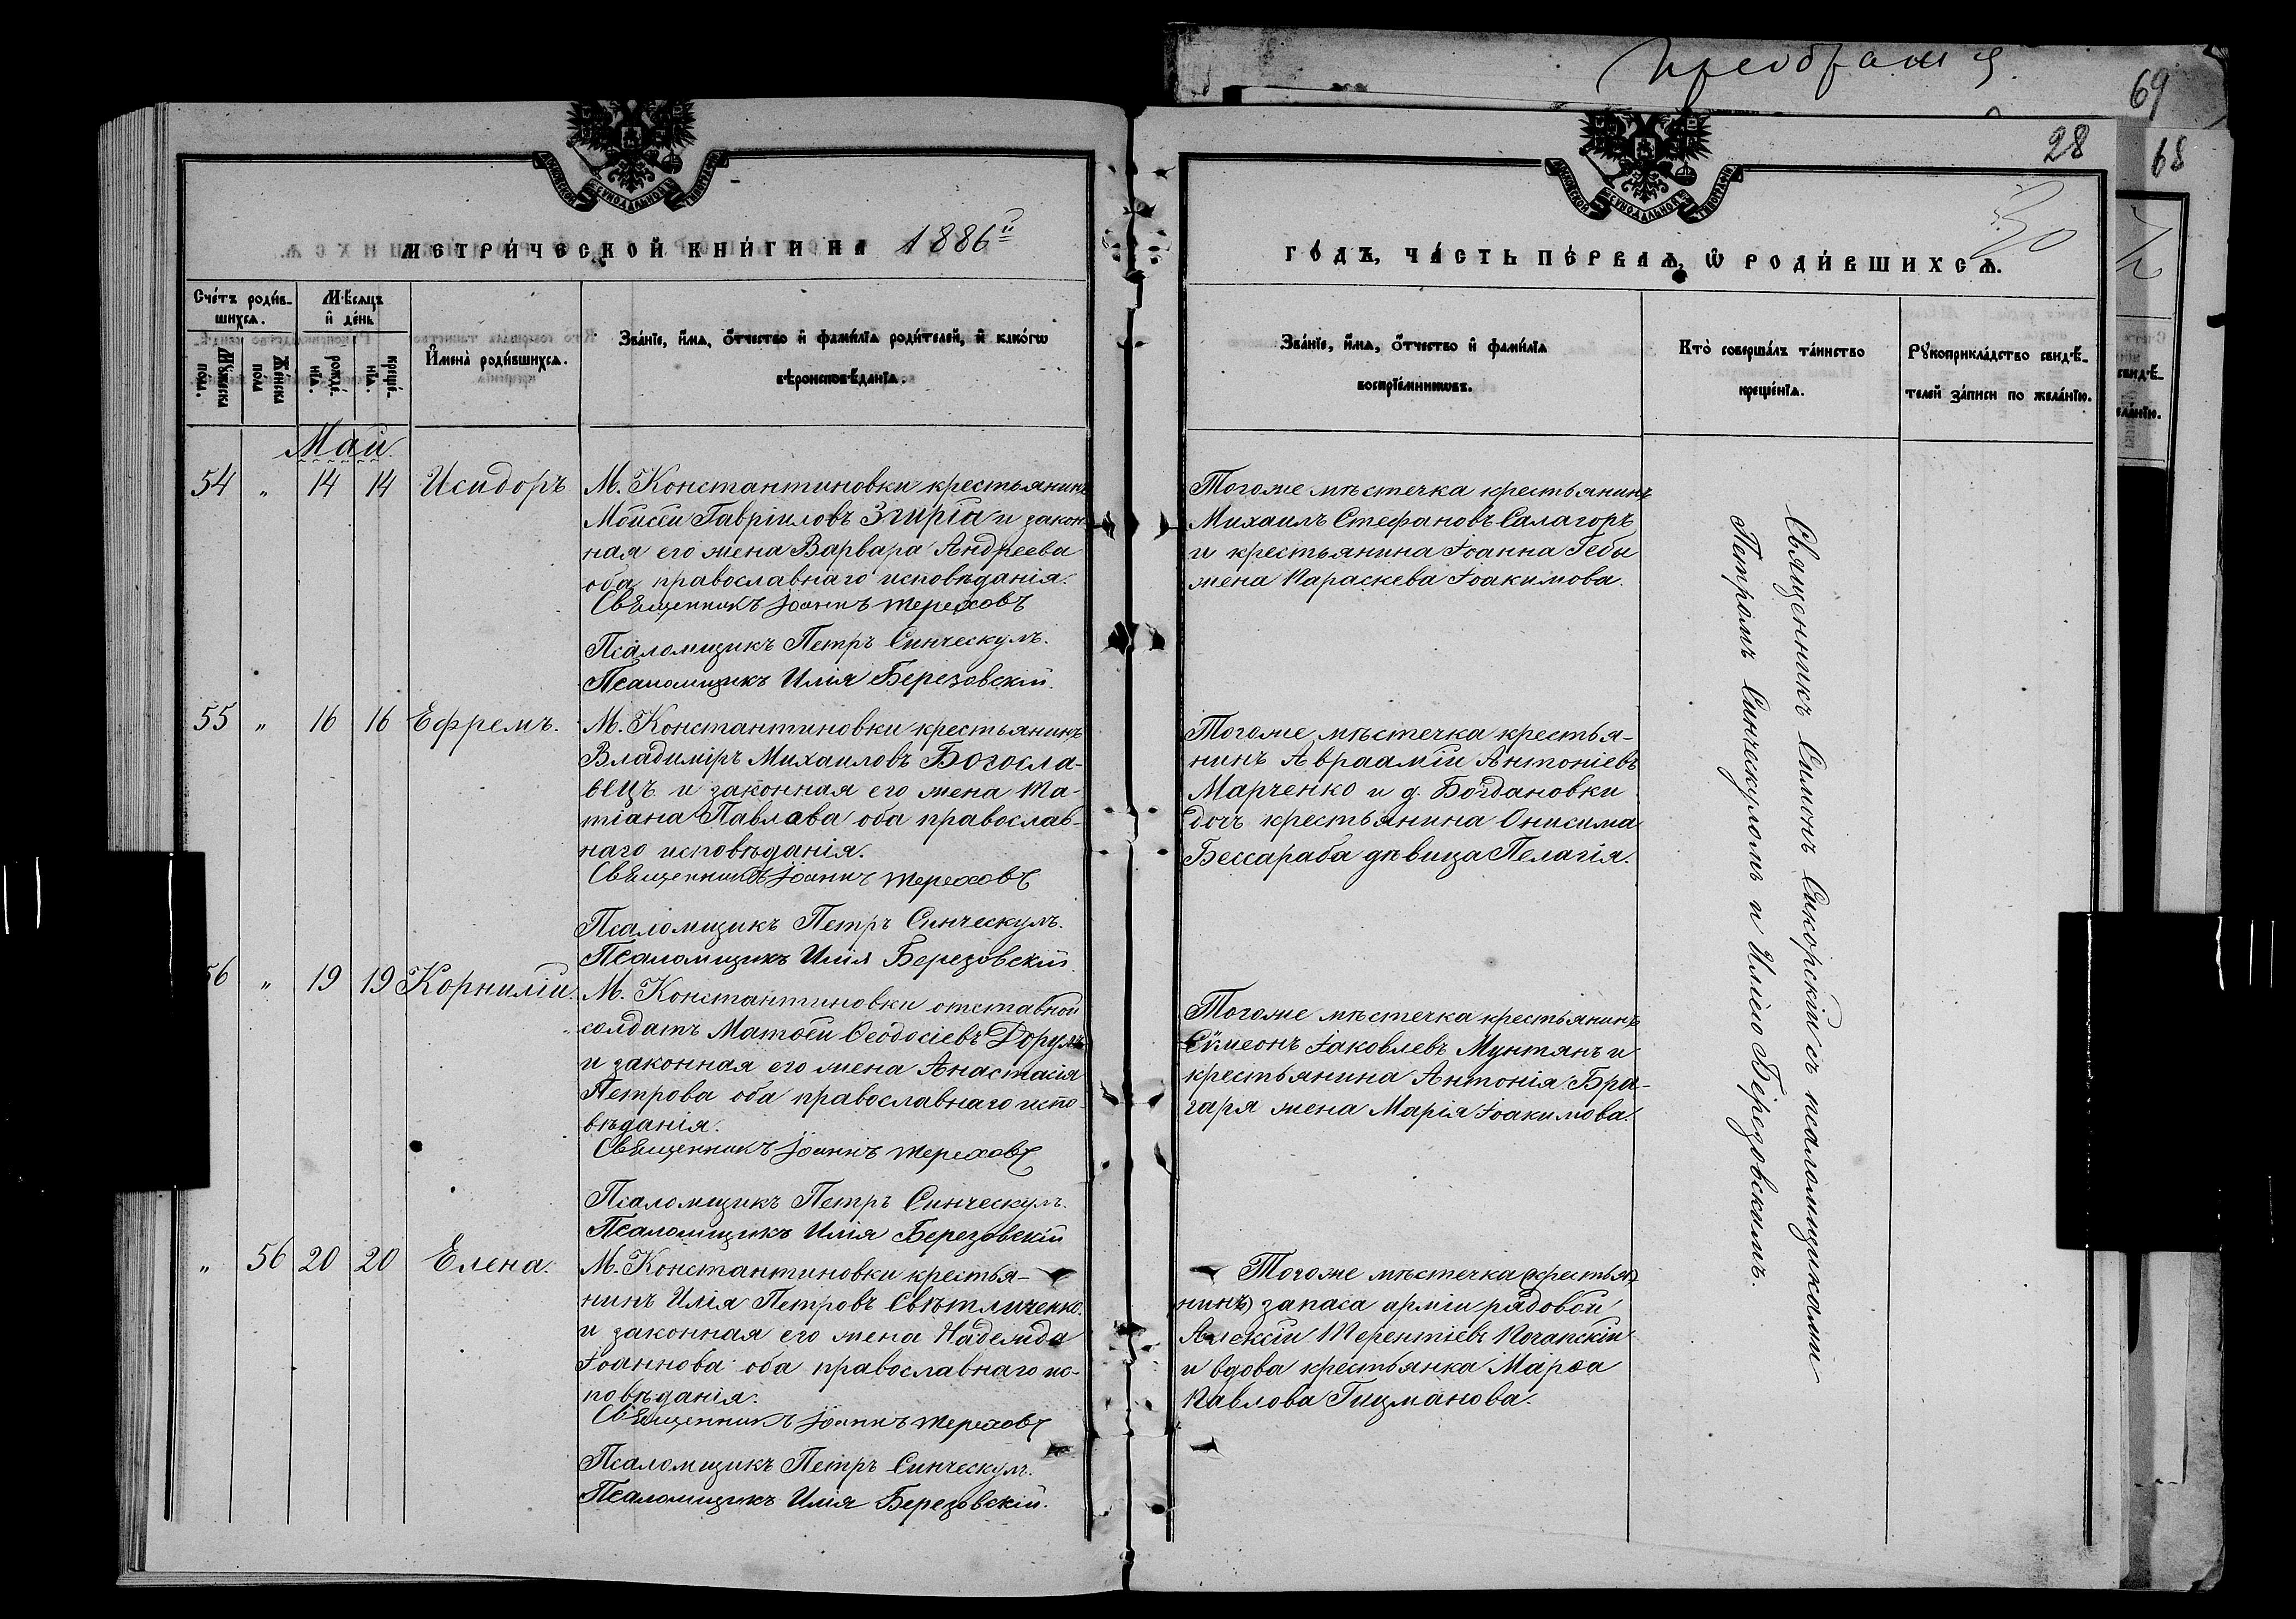 Преображ
69
28
68
30
МОСКОВСКОЙ СУНОДАЛЬНОЙ ТИПОГРАФІИ
МОСКОВСКОЙ СУНОДАЛЬНОЙ ТИПОГРАФІИ
МЕТРИ́ЧЕСКОЙ КНИ́ГИ НА 1886й
ГО́ДЪ, ЧА́СТЬ ПЕ́РВАѦ, Ѡ РОДИ́ВШИХСѦ.
Сче́тъ роди́в-
шихсѧ.
Мѣсѧцъ
и҆ де́нь
Мꙋжескa
по́ла.
Же́нска
по́ла
рожде́-
нїѧ.
креще́-
нїѧ.
И҆мена̀ роди́вшихсѧ.
Зва́нїе, и҆́мѧ, о҆́тчество и҆ фами́лїѧ роди́телей, и҆ како́гѡ
вѣроисповѣ́данїѧ.
Зва́нїе, и҆́мѧ, о҆́тчество и҆ фами́лїѧ
воспрїе́мникѡвъ.
Кто̀ соверша́лъ та́инство
креще́нїѧ.
Рꙋкоприкла́дство свидѣ́-
телей за́писи по жела́нїю.
Май.
54 " 14 14 Исидоръ
М. Константиновки крестьянинъ
Мойсей Гавріиловъ Згирга и закон
ная его жена Варвара Андреева
оба православнаго исповѣданія.
Священникъ Іоаннъ Тереховъ
Псаломщикъ Петръ Синческулъ.
Псаломщикъ Илія Березовскій.
Тогоже мѣстечка крестьянинъ
Михаилъ Стефановъ Салагоръ
и крестьянина Іоанна Гебы
жена Параскева Іоакимова.
55 " 16 16 Ефремъ.
М. Константиновки крестьянинъ
Владиміръ Михаиловъ Богосла-
вецъ и законная его жена Та-
тіана Павлова оба православ-
наго исповѣданія.
Священникъ Іоаннъ Тереховъ
Псаломщикъ Петръ Синческулъ.
Псаломщикъ Илія Березовскій
Тогоже мѣстечка крестья-
нинъ Авраамій Антоніевъ
Марченко и д. Богдановки
дочь крестьянина Онисима
Бессараба дѣвица Пелагія.
56 " 19 19 Корнилій.
М. Константиновки отставной
солдатъ Матѳей Ѳеодосіевъ Доруль
и законная его жена Анастасія
Петрова оба православнаго испо-
вѣданія.
Священникъ Іоаннъ Тереховъ
Псаломщикъ Петръ Синческулъ.
Псаломщикъ Илія Березовскій
Тогоже мѣстечка крестьянинъ
Сѵмеонъ Іаковлевъ Мунтянъ и
крестьянина Антонія Бра-
гаря жена Марія Іоакимова.
" 56 20 20 Елена.
М. Константиновки крестья-
нинъ Илія Петровъ Свѣтличенко
и законная его жена Надежда
Іоаннова оба православнаго ис-
повѣданія.
Священникъ Іоаннъ Тереховъ
Псаломщикъ Петръ Синческулъ.
Псаломщикъ Илія Березовскій.
Тогоже мѣстечка (крестья
нинъ) запаса арміи рядовой
Алексій Терентіевъ Рогапскій
и вдова крестьянка Марѳа
Павлова Гицманова.
Священникъ Симіонъ Сикорскій съ псаломщиками
Петромъ Синческуломъ и Иліею Березовскимъ.